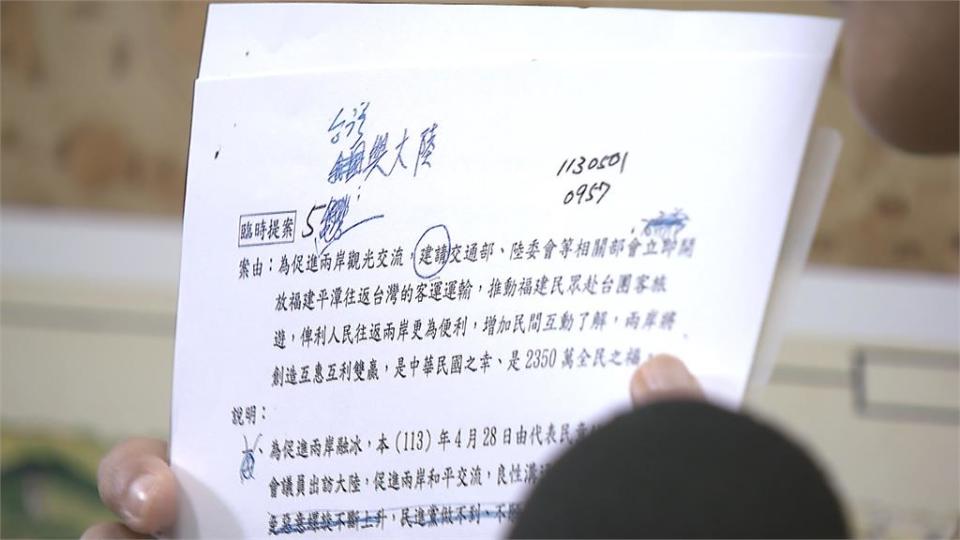 台灣
與大陸
1130501
0957
臨時提案 5
案由：為促進兩岸觀光交流，建議交通部、陸委會等相關部會立即開
放福建平潭往返台灣的客運運輸，推動福建民眾赴台團客旅
遊，俾利人民往返兩岸更為便利，增加民間互動了解，兩岸將
創造互惠互利雙贏，是中華民國之幸、是2350萬全民之福。
說明：
、為促進兩岸融冰，本(113)年4月28日由代表民意
會議員出訪大陸，促進兩岸和平交流，良性溝
更惡意螺旋不斷上升，民進黨做不到，不